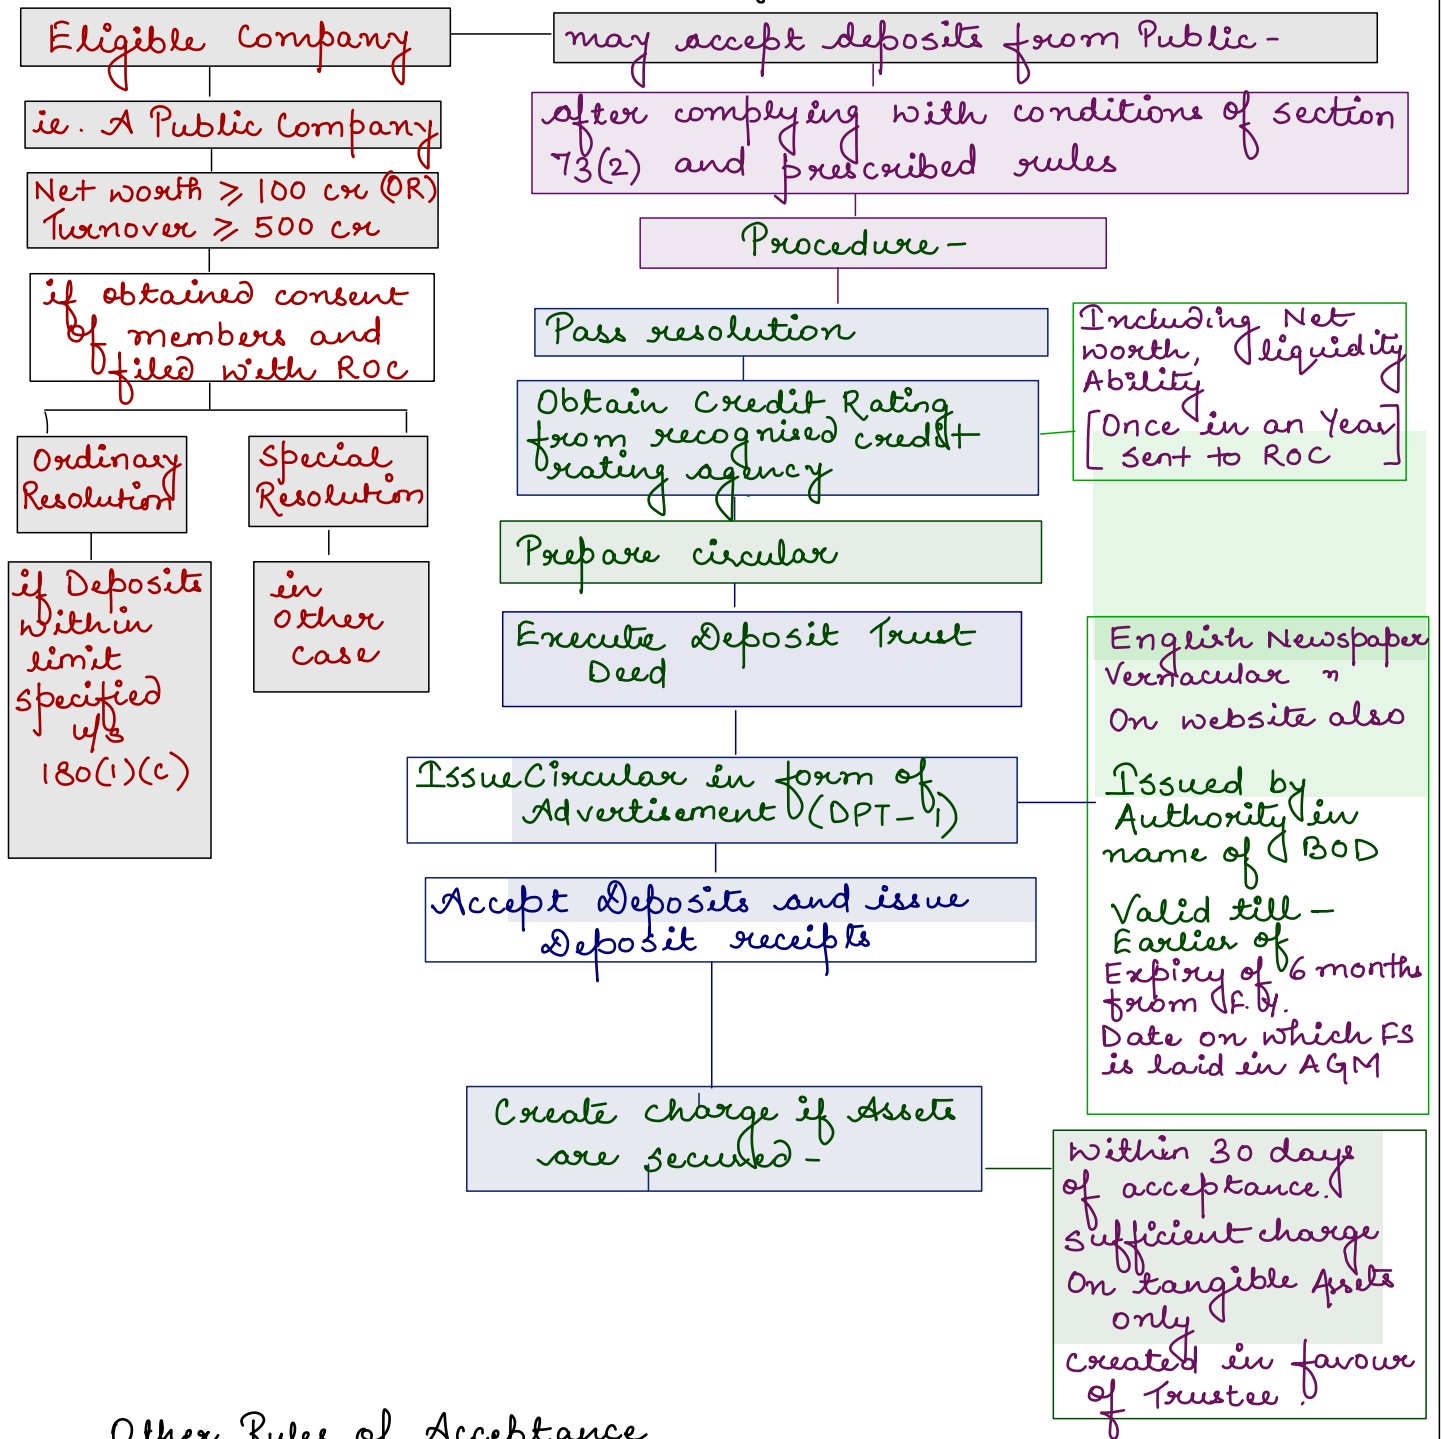 Eligible Company
ie. A Public Company
Net worth ⩾ 100 cr (OR)
Turnover ⩾ 500 cr
if obtained consent
of members and
filed with ROC
Ordinary
Resolution
if Deposits
within
limit
specified
u/s
180(1)(c)
Special
Resolution
in
other
case
may accept deposits from Public -
after complying with conditions of section
73(2) and prescribed rules
Procedure -
Pass resolution
Obtain Credit Rating
from recognised credit
rating agency
Including Net
worth, liquidity
Ability
[Once in an Year
sent to ROC]
Prepare circular
Execute Deposit Trust
Deed
Issue Circular in form of
Advertisement (DPT-1)
English Newspaper
Vernacular "
On website also
Issued by
Authority in
name of BOD
Valid till -
Earlier of
Expiry of 6 months
from F.Y.
Date on which FS
is laid in AGM
Accept Deposits and issue
Deposit receipts
Create charge if Assets
are secured -
Within 30 days
of acceptance.
Sufficient charge
On tangible Assets
only
created in favour
of Trustee.
Other Rules of Acceptance